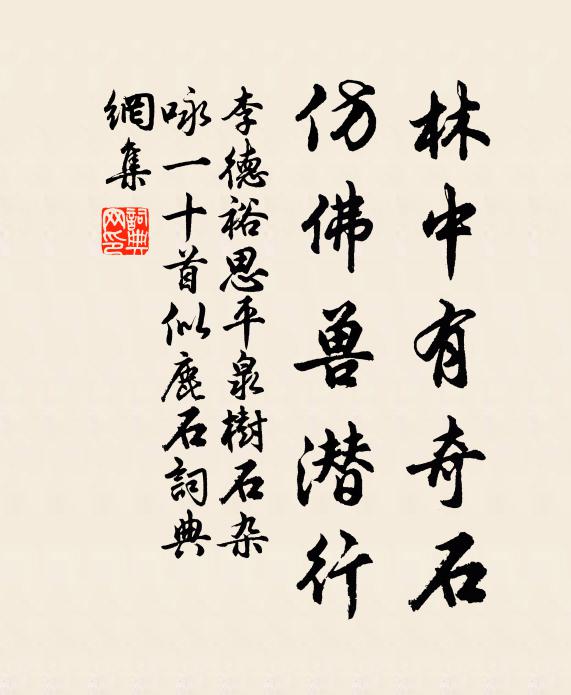 林中有奇石
仿佛兽潜行
李德裕思平泉樹石杂
咏一十首似鹿石詞典
網集
詞典网印